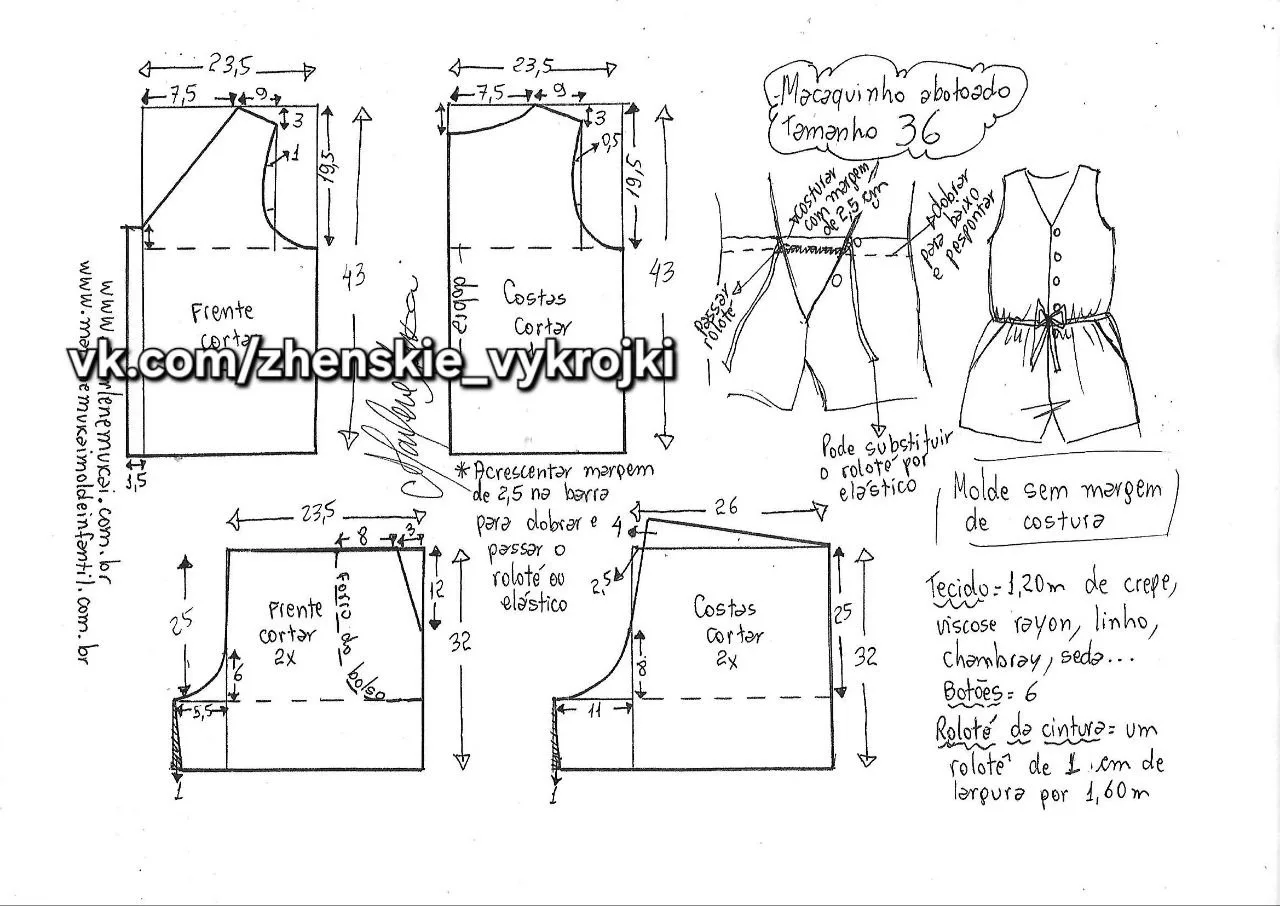 -Macaquinho abotoado
tamanho 36
23,5
7,5
9
3
1
19,5
43
Frente
cortar
1,5
23,5
7,5
9
3
0,5
19,5
43
dobra
Costas
cortar
vk.com/zhenskie_vykrojki
costurar
com margem
de 2,5 cm
dobrar
para baixo
e pespontar
passar
roloté
Pode substituir
o roloté por
elástico
*Acrescentar margem
de 2,5 na barra
para dobrar e
passar o
roloté ou
elástico
Molde sem margem
de costura
23,5
8
3
12
25
32
Frente
cortar
2x
Forro do
bolso
6
5,5
1
26
4
2,5
Costas
cortar
2x
25
32
8
11
1
Tecido=1,20m de crepe,
viscose rayon, linho,
chambray, seda...
Botões=6
Roloté da cintura= um
roloté de 1 cm de
largura por 1,60m
www.marlenemukaimoldeinfantil.com.br